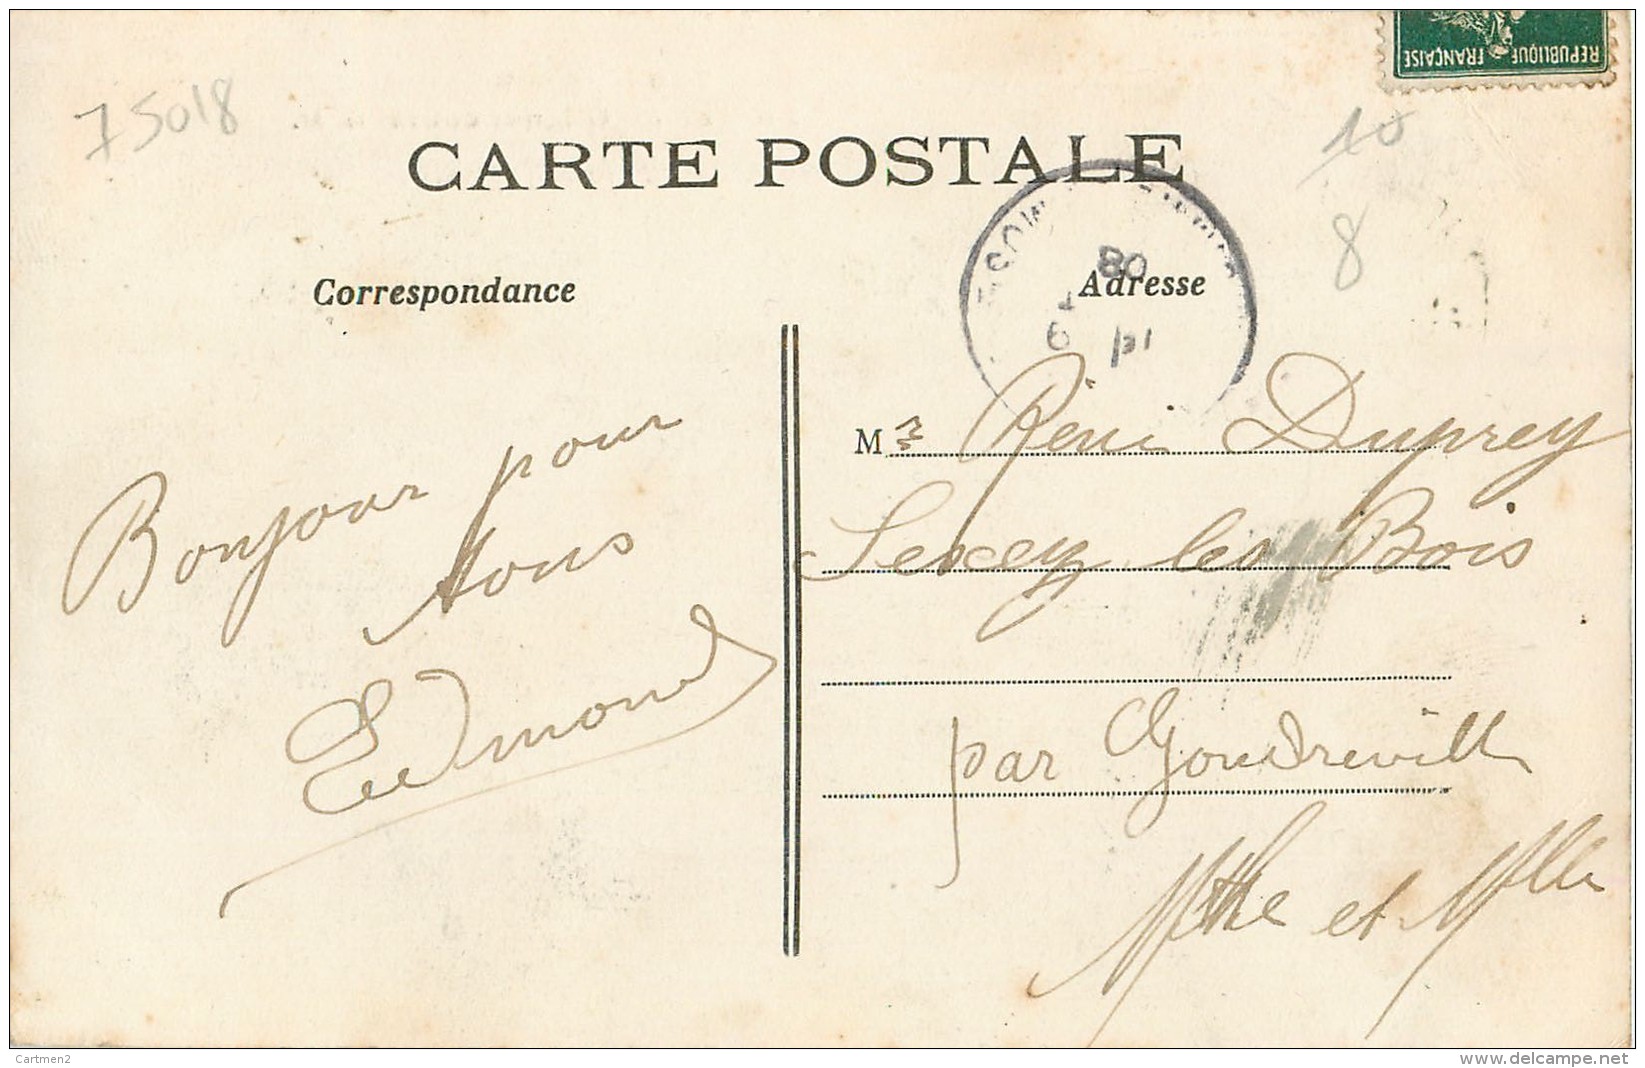 REPUBLIQUE FRANÇAISE
75018
10
8
CARTE POSTALE
Correspondance
Adresse
08
Bonjour pour
tous
Edmond
Mr René Duprey
Sexey les Bois
par Gondreville
Mthe et Mlle
Cartmen2
www.delcampe.net